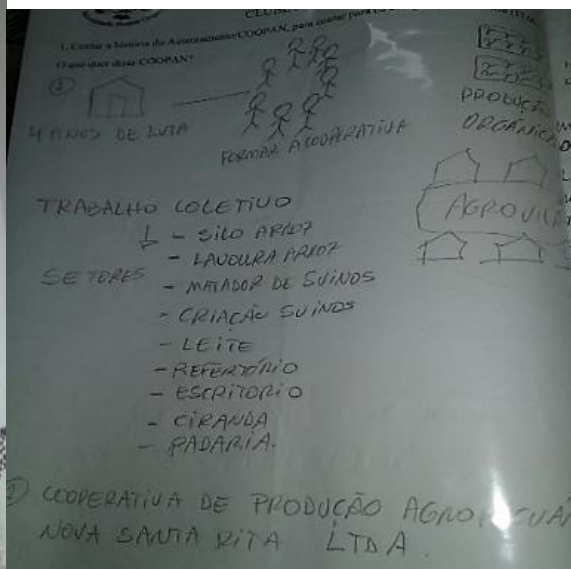 1. Contar a história do Assentamento/COOPAN, para contar para
O que quer dizer COOPAN?
4 ANOS DE LUTA
FORMAR A COOPERATIVA
PRODUÇÃO
ORGÂNICA
AGROVIL
TRABALHO COLETIVO
- SILO ARROZ
- LAVOURA ARROZ
SETORES - MATADOR DE SUINOS
- CRIAÇÃO SUINOS
- LEITE
- REFERTÓRIO
- ESCRITORIO
- CIRANDA
- PADARIA.
COOPERATIVA DE PRODUÇÃO AGROPECUÁR
NOVA SANTA RITA LTDA.